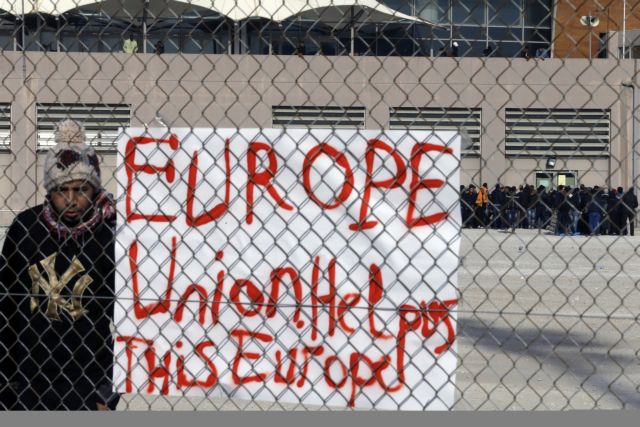 EUROPE
Union.HeLp us
THiS EUrope
NY